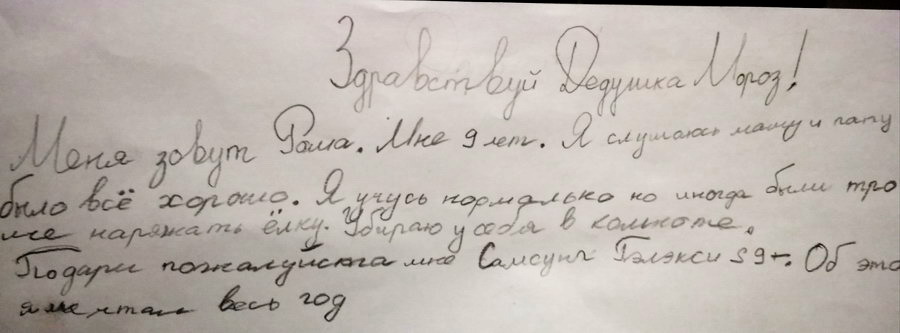 Здравствуй Дедушка Мороз!
Меня зовут Рома. Мне 9 лет. Я слушаюсь маму и папу
было всё хорошо. Я учусь нормально но иногда были тро
ме наряжать ёлку. Убираю у себя в комноте.
Подари пожалуйста мне Самсунг Гэлэкси S9+. Об это
я мечтал весь год